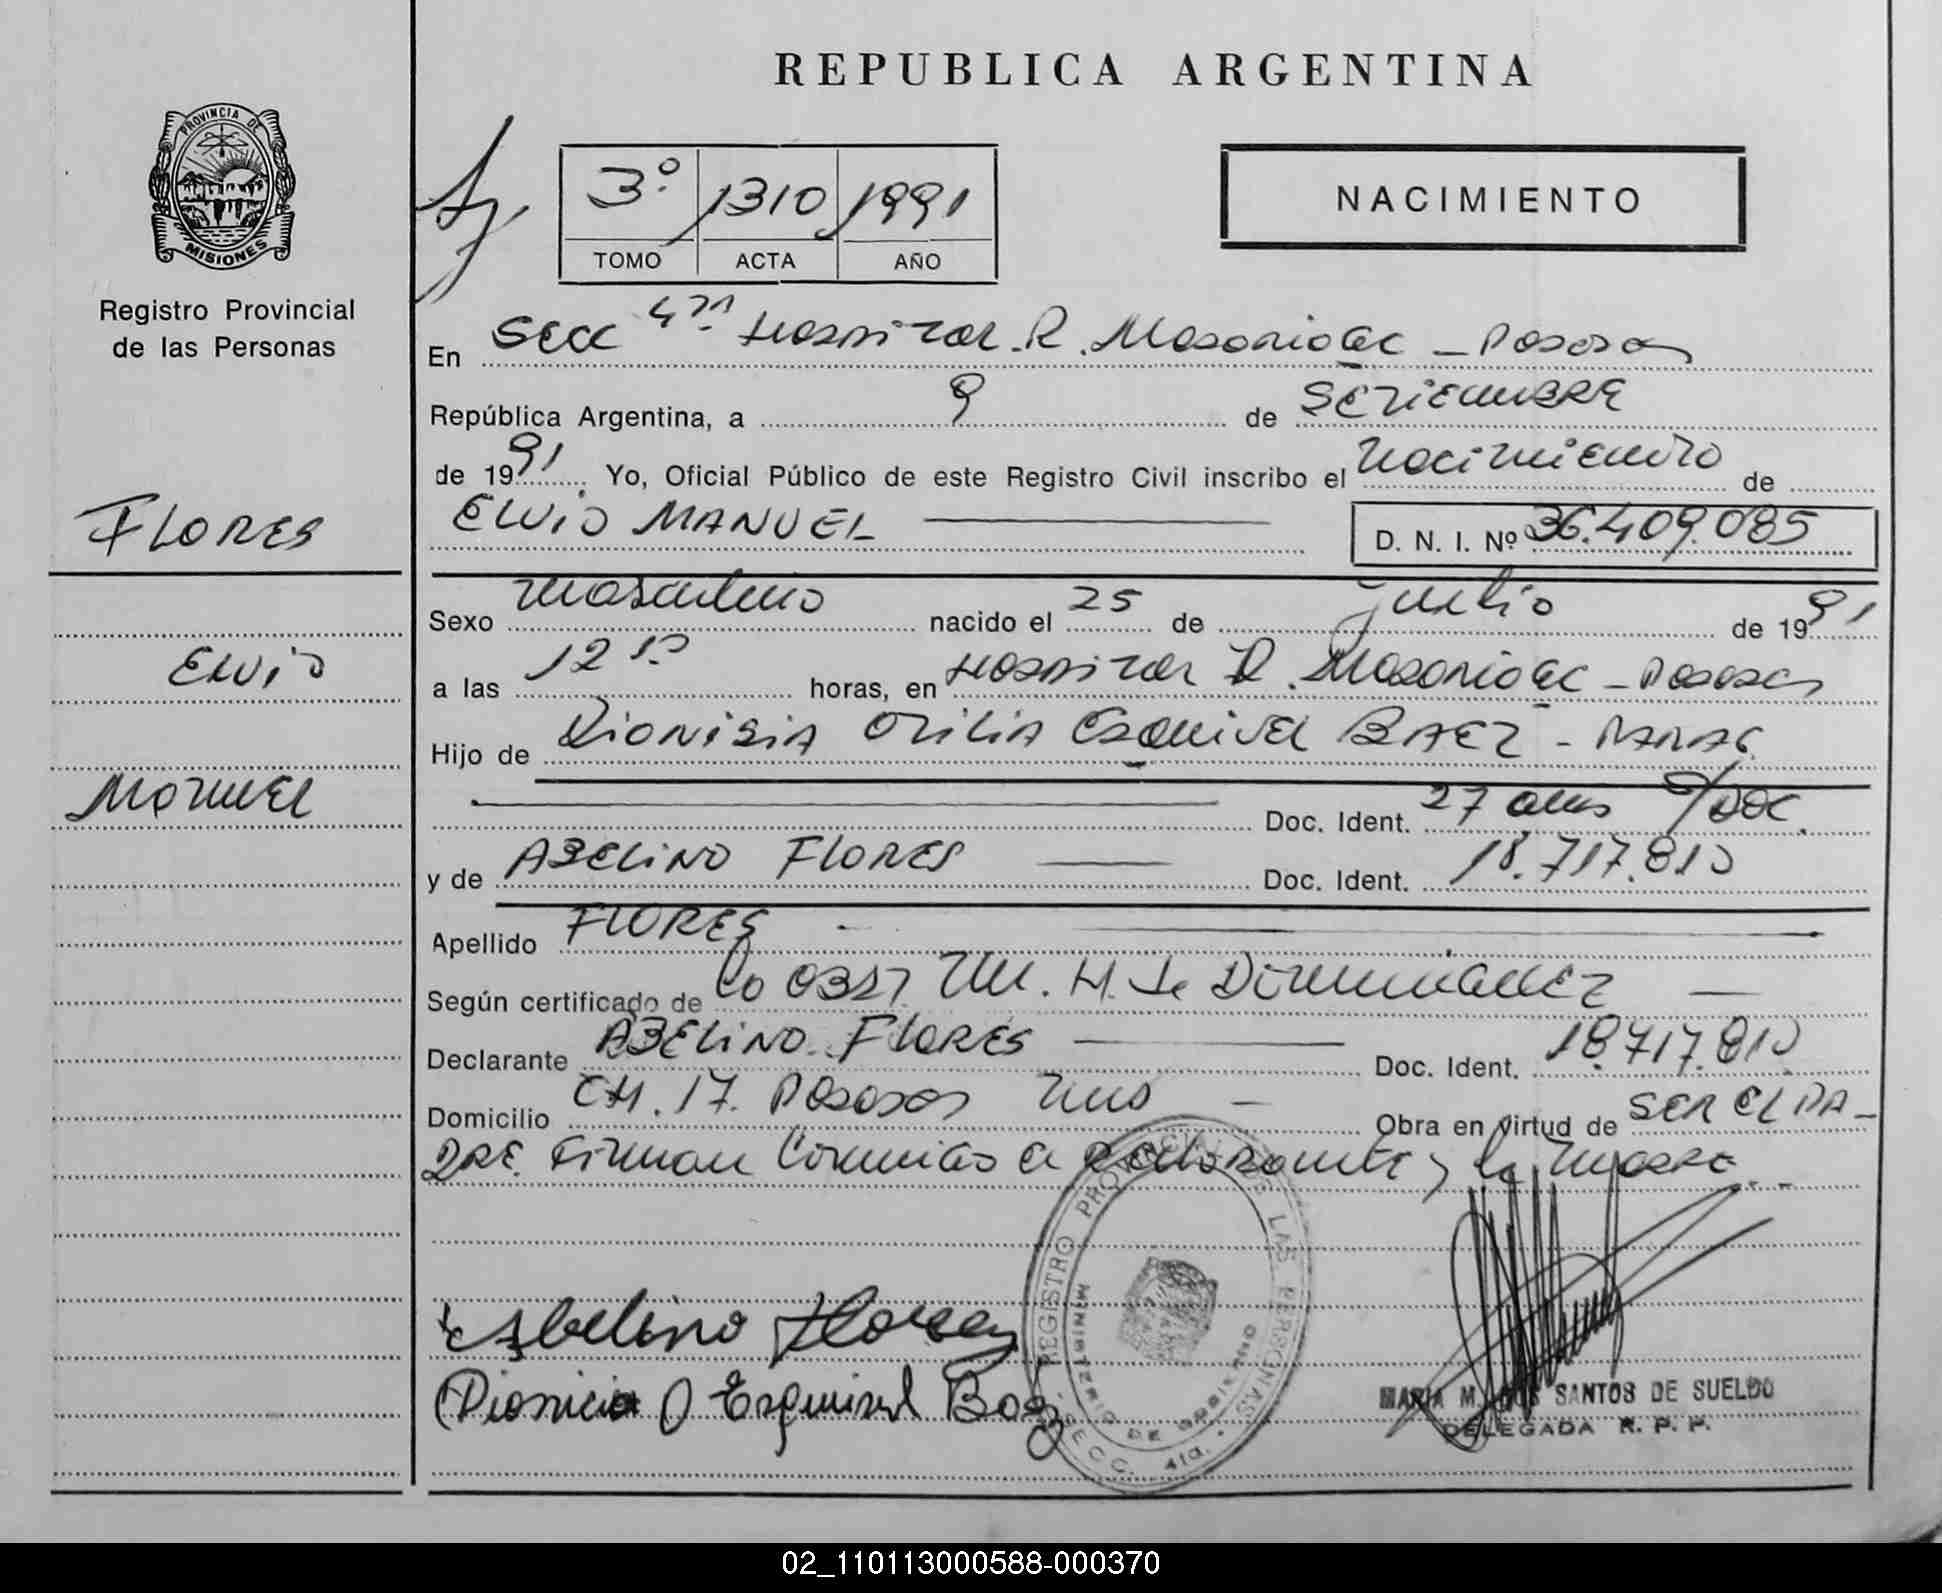 REPUBLICA ARGENTINA
PROVINCIA DE
MISIONES
Registro Provincial
de las Personas
3º 1310 1991
TOMO ACTA AÑO
NACIMIENTO
En SECC 4ta Hospital R. Madariaga - Posadas
República Argentina, a 9 de SETIEMBRE
de 1991. Yo, Oficial Público de este Registro Civil inscribo el nacimiento de
FLORES
ELVIO MANUEL D. N. I. Nº 36.409.085
Sexo masculino nacido el 25 de julio de 1991
Elvio
a las 12 10 horas, en Hospital R. Madariaga - Posadas
Hijo de Dionisia Otilia Esquivel BAEZ - PARAG.
Manuel
Doc. Ident. 27 años S/DOC.
y de ABELINO FLORES Doc. Ident. 18.717.810
Apellido FLORES
Según certificado de la Obst. M. H. de
Declarante ABELINO FLORES Doc. Ident. 18.717.810
Domicilio CH. 17. Posadas Mnes - Obra en virtud de SER EL PA-
DRE. Firman conmigo el declarante y la madre
Abelino Flores
Dionicia O Esquivel Baez
REGISTRO PROVINCIAL DE LAS PERSONAS
MINISTERIO DE GOBIERNO
SECC. 4ta.
MARIA M. DOS SANTOS DE SUELDO
DELEGADA R. P. P.
02_110113000588-000370